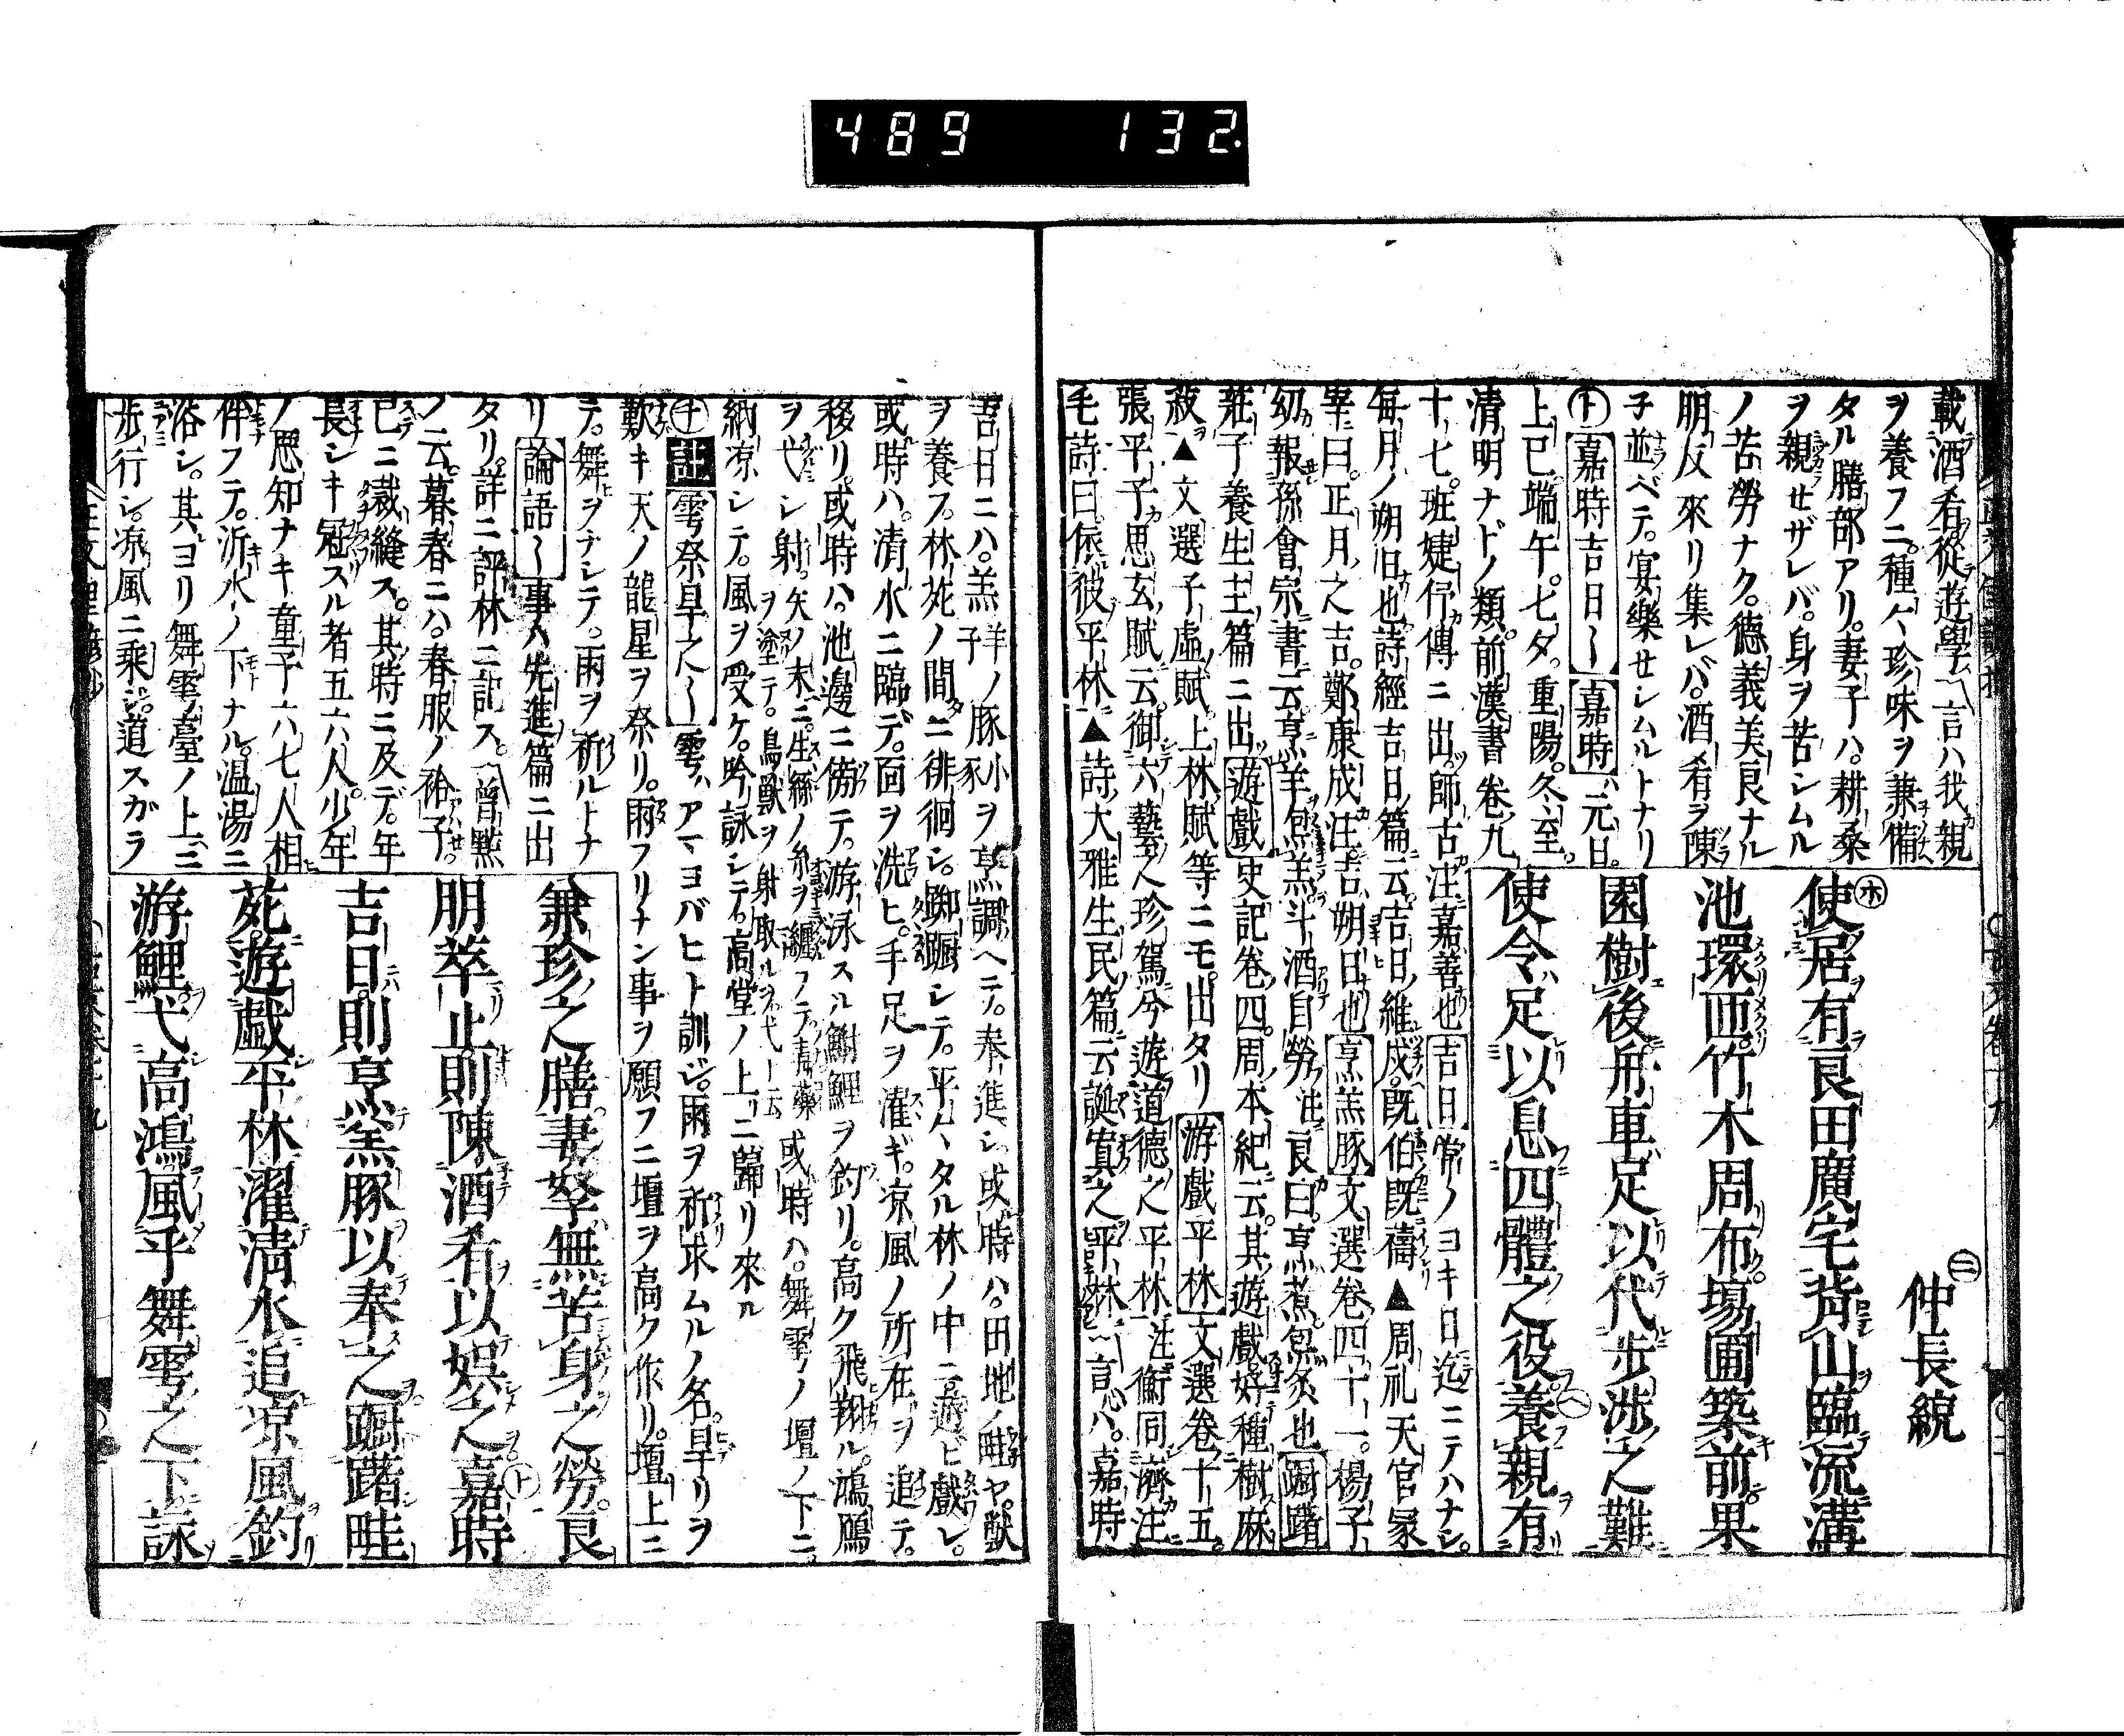 489 132.
載酒肴從遊學〽言ハ我親
ヲ養フニ。種々珍味ヲ兼備
タル膳部アリ。妻子ハ。耕桑
ヲ親セザレバ。身ヲ苦シムル
ノ苦勞ナク。德義美良ナル
朋友來リ集レバ。酒肴ヲ陳
子並ベテ。宴樂セシムルトナリ
㋣嘉時吉日〽嘉時ハ元日。
上巳。端午。七夕。重陽。冬至。
清明ナドノ類。前漢書卷九
十七。班婕伃傳ニ出。師古注嘉善也 吉日 常ノヨキ日迄ニテハナシ。
毎月ノ朔旧也 詩經吉日篇云。吉日維戊。既伯既禱▲周礼天官冢
宰曰。正月之吉。鄭康成注吉朔日也 烹羔豚 文選卷四十一。楊子
幼報孫會宗書云烹羊炰羔。斗酒自勞 注良曰。烹煮炰炙也 躕躇
莊子養生主篇ニ出 遊戲 史記卷四。周本紀云。其遊戲好種樹麻
菽▲文選子虛賦。上林賦等ニモ。出タリ 游戲平林 文選卷十五。
張平子思玄賦云。御六藝之珍駕兮遊道德之平林 注衡同濟注
毛詩曰。依彼平林▲詩大雅生民篇云誕寘之平林〽言心ハ。嘉時
㊁仲長統
㋭使居有良田廣宅背山臨流溝
池環匝。竹木周布。塲圃築前果
園樹後。舟車足以代步涉之難
使令足以息四體之役。㋬養親有
吉日ニハ。羔羊ノ子豚小豕ヲ烹調ヘテ。奉進シ。或時ハ。田地ノ畦ヤ。獸
ヲ養フ。林苑ノ間ニ徘徊シ。踟躕シテ。平々タル林ノ中ニ遊ビ戲レ。
或時ハ。清水ニ臨デ。面ヲ洗ヒ。手足ヲ濯ギ。凉風ノ所在ヲ追テ。
移リ。或時ハ。池邊ニ傍テ。游泳スル鮒鯉ヲ釣リ。高ク飛翔ル。鴻鴈
ヲ弋シ射。矢ノ末ニ。生絲ノ糸ヲ纏フテ。毒藥ヲ塗テ。鳥獸ヲ射取ルヲ弋ト云 或時ハ。舞雩ノ壇ノ下ニ。
納凉シテ。風ヲ受ケ。吟詠シテ。高堂ノ上リニ歸リ來ル
㋠註 雩祭旱之〽雩ハアマヨバヒト訓ジ。雨ヲ祈求ムルノ名。旱リヲ
歎キ天ノ龍星ヲ祭リ。雨フリナン事ヲ願フニ壇ヲ高ク作リ。壇上ニ
テ。舞ヲナシテ。雨ヲ祈ルトナ
リ 論語〽事ハ先進篇ニ出
タリ。詳ニ評林ニ記ス。〽曾點
ノ云。暮春ニハ。春服ノ袷子。
已ニ裁縫ス。其時ニ及デ。年
長シキ冠スル者五六人。少年
ノ思知ナキ童子六七人相
伴フテ。沂水ノ下ナル。温湯ニ
浴シ。其ヨリ舞雩臺ノ上ニ
歩行シ。凉風ニ乘ジ。道スガラ
兼珍之膳。妻孥無苦身之勞。良
朋萃止則陳酒肴以娯之㋣嘉時
吉日。則烹羔豚以奉之。躕躇畦
苑。遊戲平林濯清水追凉風釣
游鯉。弋高鴻風乎舞雩之下詠